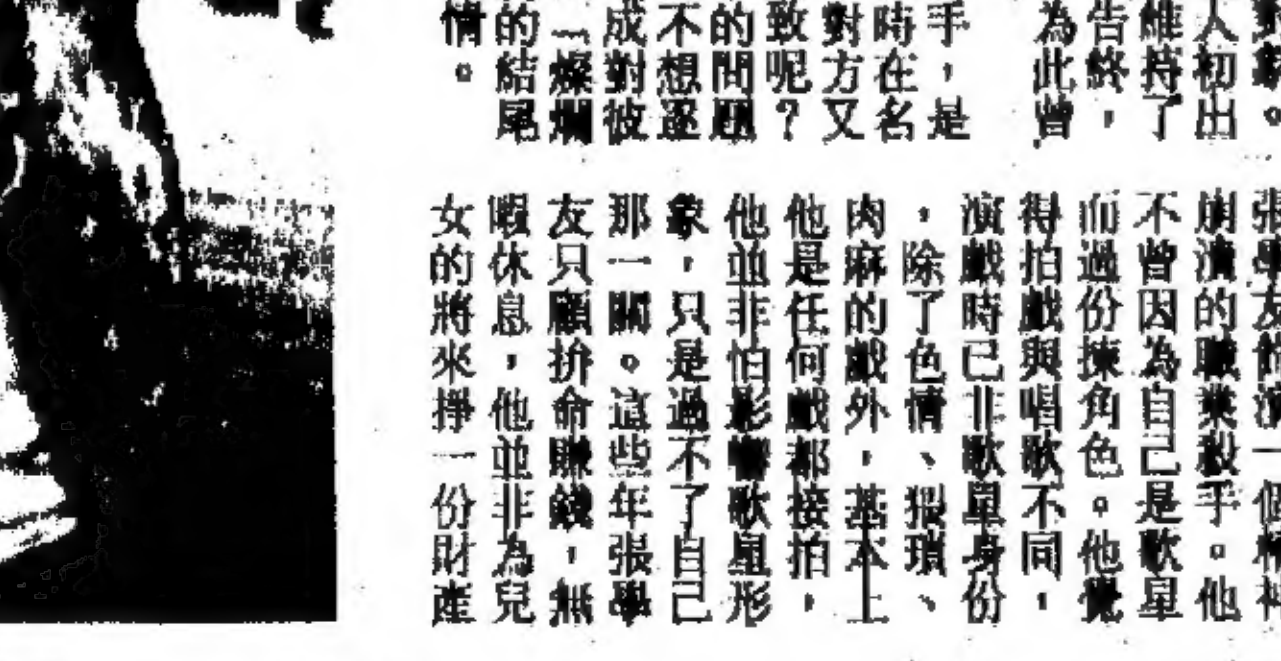 人初出
維持了
告終，
為此曾
手，是
時在名
對方又
致呢？
的問題
不想逐
成對彼
「燦爛
的結尾
情。
張學友飾演一個精神
崩潰的職業殺手。他
不曾因為自己是歌星
而過份揀角色。他覺
得拍戲與唱歌不同，
演戲時已非歌星身份
，除了色情、猥瑣、
肉麻的戲外，基本上
他是任何戲都接拍，
他並非怕影響歌星形
象，只是過不了自己
那一關。這些年張學
友只顧拚命賺錢，無
暇休息，他並非為兒
女的將來掙一份財產